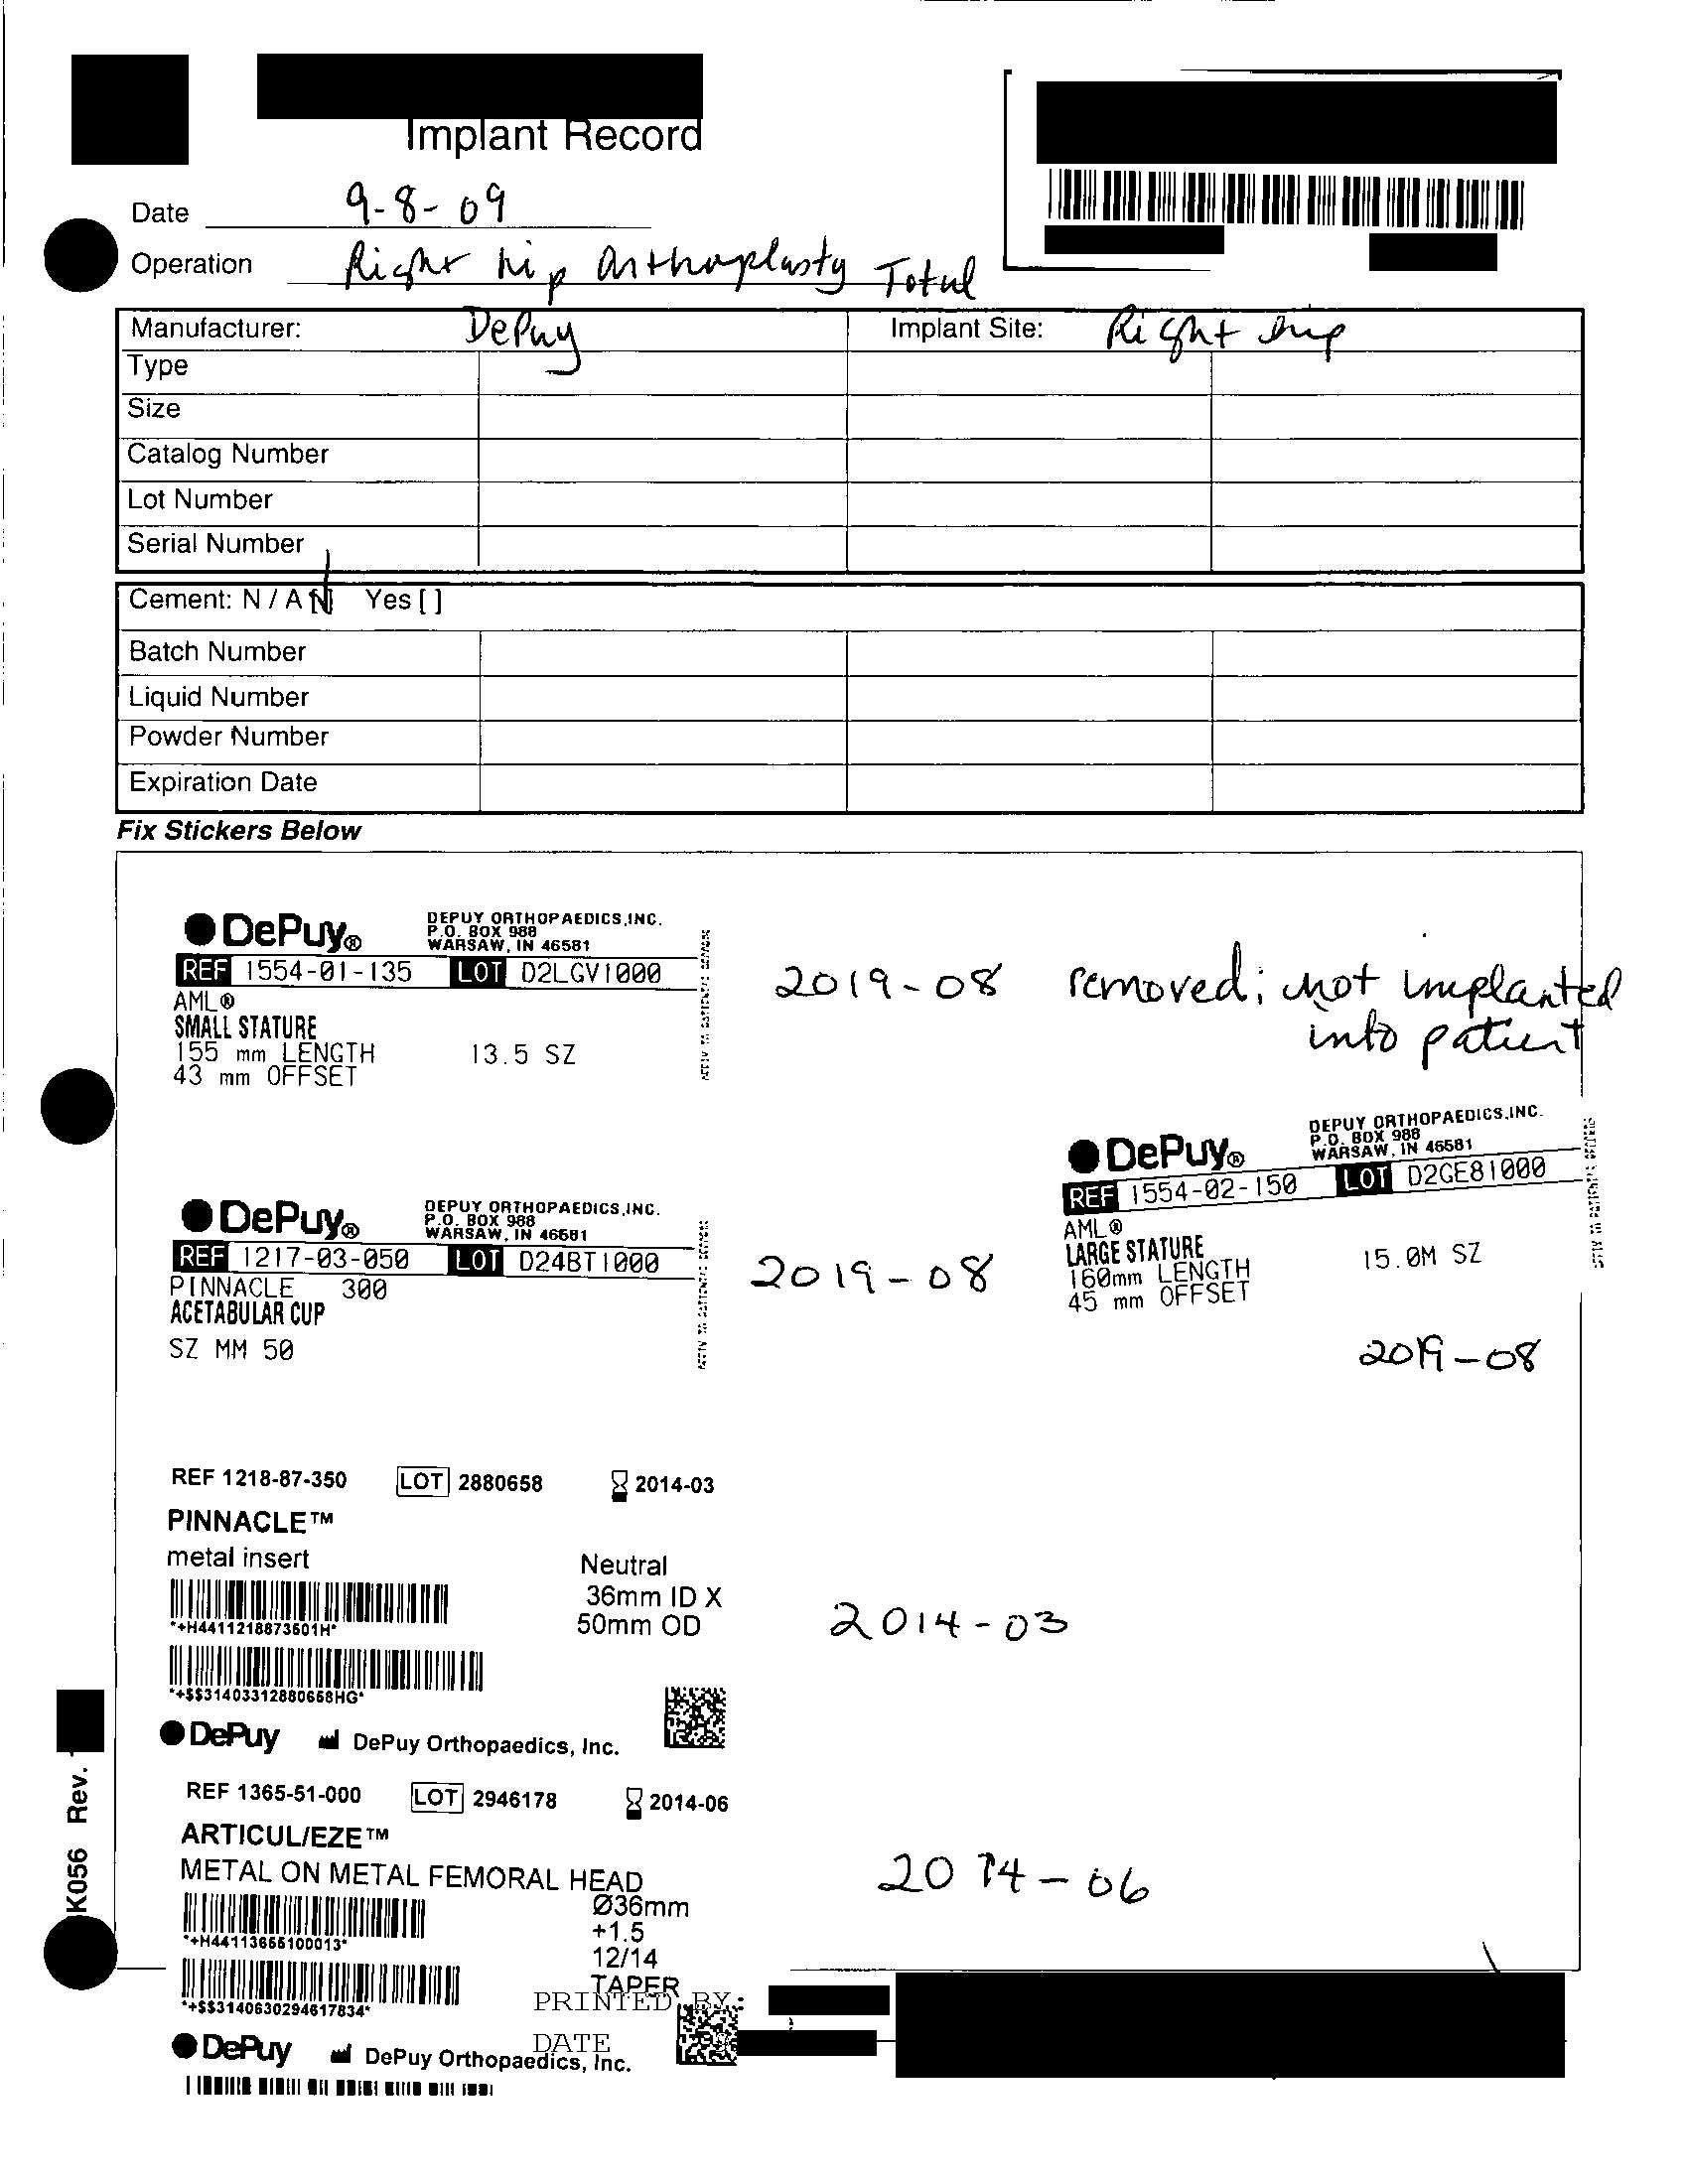 Implant Record
Date 9-8-09
Operation Right hip Arthroplasty Total
Manufacturer: DePuy Implant Site: Right hip
Type
Size
Catalog Number
Lot Number
Serial Number
Cement: N / A [ ] Yes [ ]
Batch Number
Liquid Number
Powder Number
Expiration Date
Fix Stickers Below
DePuy® DEPUY ORTHOPAEDICS,INC.
P.O. BOX 988
WARSAW, IN 46581
REF 1554-01-135 LOT D2LGV1000
AML®
SMALL STATURE
155 mm LENGTH 13.5 SZ
43 mm OFFSET
2019-08 removed; not implanted
into patient
DePuy® DEPUY ORTHOPAEDICS,INC.
P.O. BOX 988
WARSAW, IN 46581
REF 1554-02-150 LOT D2GE81000
AML®
LARGE STATURE
160mm LENGTH 15.0M SZ
45 mm OFFSET
2019-08
DePuy® DEPUY ORTHOPAEDICS,INC.
P.O. BOX 988
WARSAW, IN 46581
REF 1217-03-050 LOT D24BT1000
PINNACLE 300
ACETABULAR CUP
SZ MM 50
2019-08
REF 1218-87-350 LOT 2880658 2014-03
PINNACLE™
metal insert
Neutral
36mm ID X
50mm OD
2014-03
*+H4411218873501H*
*+$$31403312880658HG*
DePuy DePuy Orthopaedics, Inc.
REF 1365-51-000 LOT 2946178 2014-06
ARTICUL/EZE™
METAL ON METAL FEMORAL HEAD
Ø36mm
+1.5
12/14
TAPER
2014-06
PRINTED BY:
DATE
DePuy DePuy Orthopaedics, Inc.
K056 Rev.